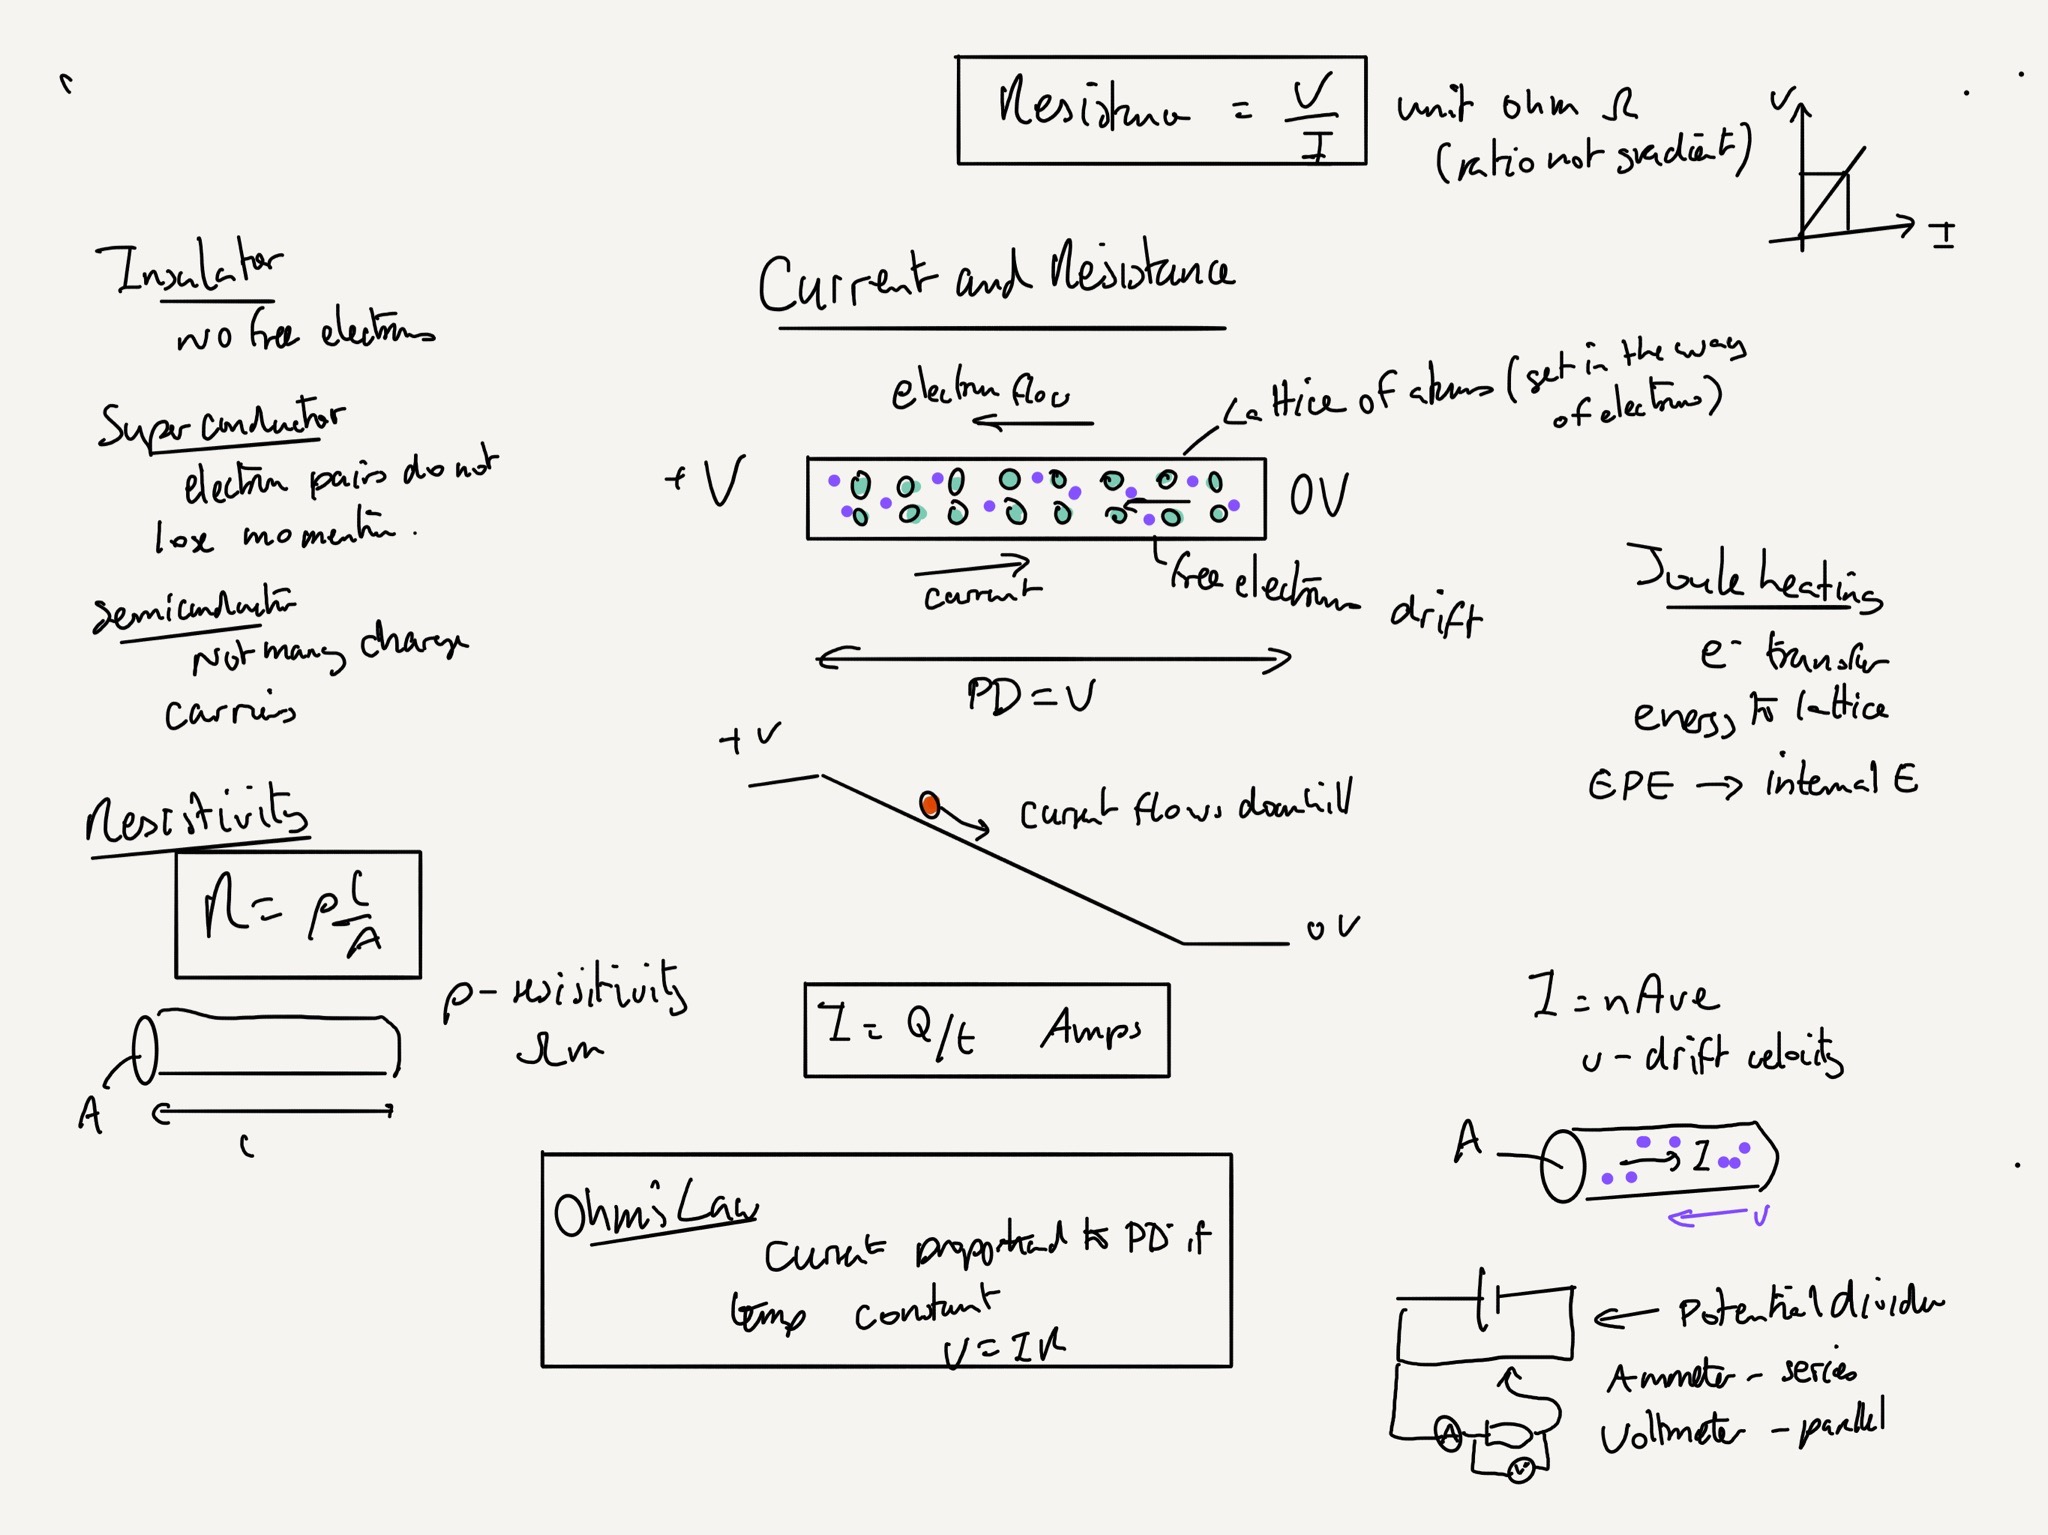 Resistance = V/I
unit ohm Ω
(ratio not gradient)
V
I
Current and Resistance
Insulator
no free electrons
Superconductor
electron pairs do not
lose momentum.
semiconductor
Not many charge
carriers
Resistivity
R = ρ l/A
ρ - resisitivity
Ωm
A
l
electron flow
Lattice of atoms (get in the way
of electrons)
+V
0V
current
free electrons drift
PD = V
+V
current flows downhill
0V
I = Q/t Amps
Ohm's Law
Current proportional to PD if
temp constant
V = IR
Joule heating
e⁻ transfer
energy to lattice
EPE → internal E
I = nAve
v - drift velocity
A
I
v
Potential divider
Ammeter - series
Voltmeter - parallel
A
V